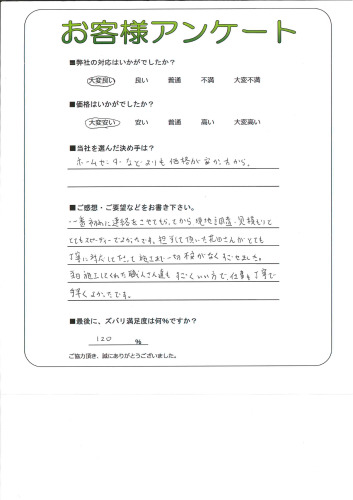 お客様アンケート
■弊社の対応はいかがでしたか?
大変良い 良い 普通 不満 大変不満
■価格はいかがでしたか?
大変安い 安い 普通 高い 大変高い
■当社を選んだ決め手は?
ホームセンターなどよりも価格が安かったから。
■ご感想・ご要望などをお書き下さい。
一番初めに連絡をさせてもらってから現地調査・見積もりと
とてもスピーディーでよかったです。担当して頂いた さんがとても
丁寧に対応して下さって施工まで一切 がなくすごせました。
当日施工してくれた職人さん達もすごくいい方で、仕事も丁寧で
早くよかったです。
■最後に、ズバリ満足度は何%ですか?
120 %
ご協力頂き、誠にありがとうございました。